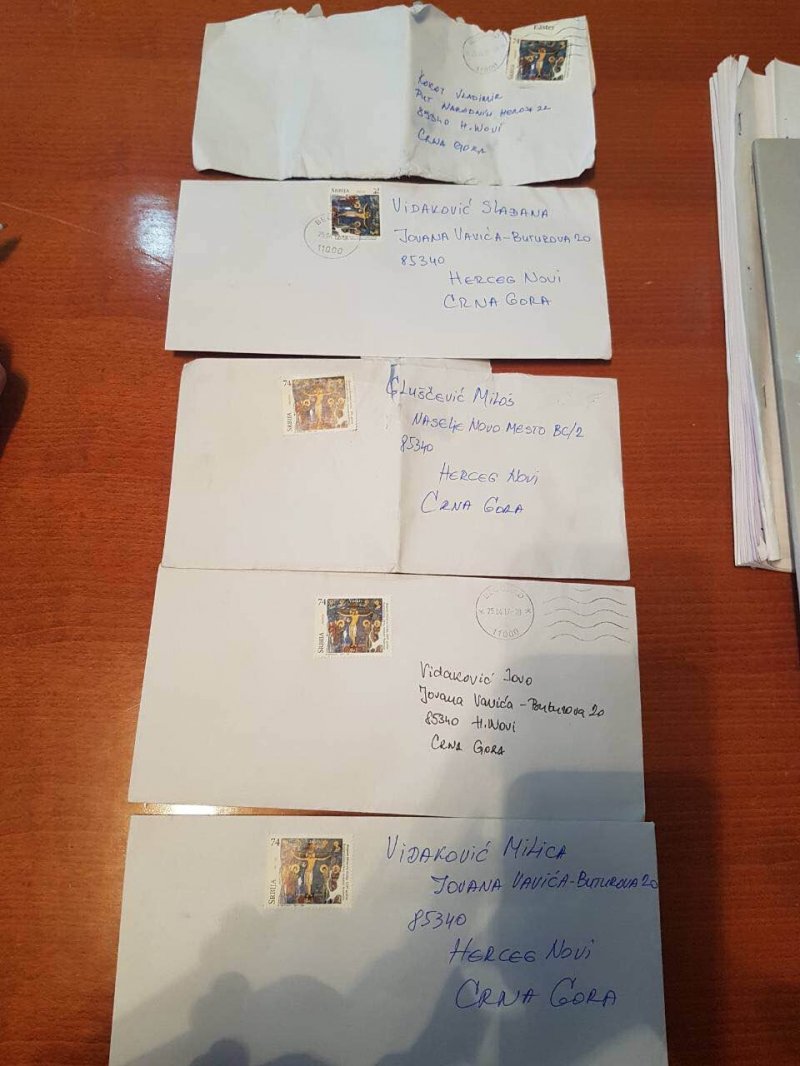 Easter
74
11000
Vladimir
Put Narodnih Heroja 22
85340 H. Novi
Crna Gora
SRBIJA
BEO
11000
Vidaković Slađana
Jovana Vavića-Buturova 20
85340
Herceg Novi
Crna Gora
74
SRBIJA
Gluščević Miloš
Naselje Novo Mesto BC/2
85340
Herceg Novi
Crna Gora
74
SRBIJA
25.04.17
11000
Vidaković Jovo
Jovana Vavića - Buturova 20
85340 H. Novi
Crna Gora
74
SRBIJA
Vidaković Milica
Jovana Vavića-Buturova 20
85340
Herceg Novi
Crna Gora